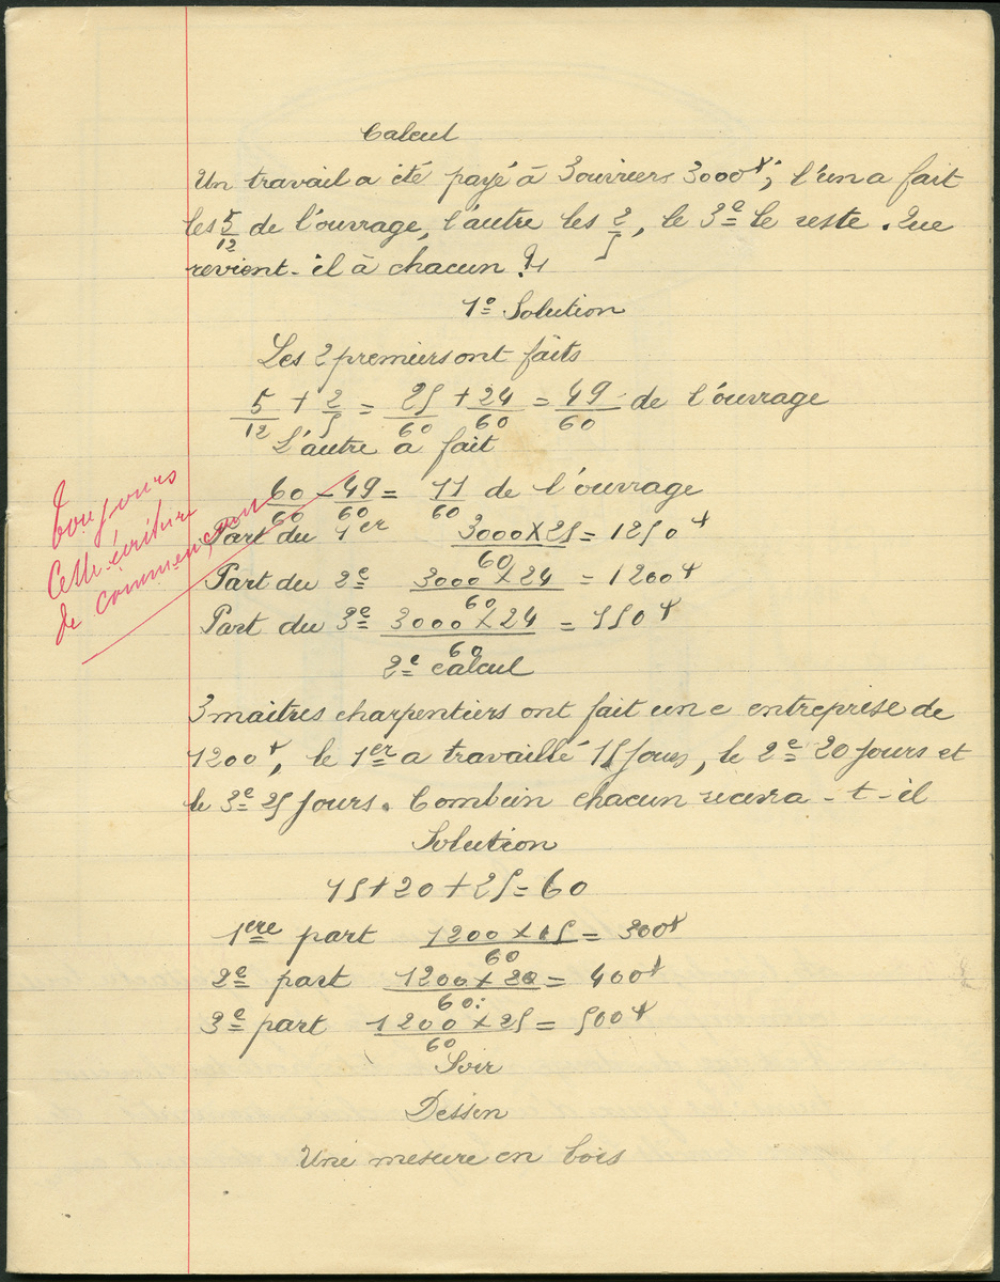 Calcul
Un travail a été payé à 3 ouvriers 3000f; l'un a fait
les 5/12 de l'ouvrage, l'autre les 2/5, le 3e le reste. Que
revient-il à chacun ?
1° Solution
Les 2 premiers ont faits
5/12 + 2/5 = 25/60 + 24/60 = 49/60 de l'ouvrage
L'autre a fait
60/60 - 49/60 = 11/60 de l'ouvrage
Part du 1er 3000 X 25/60 = 1250f
Part du 2e 3000 X 24/60 = 1200f
Part du 3e 3000 X 24/60 = 550f
Toujours
cette écriture
de commençant
2e calcul
3 maîtres charpentiers ont fait une entreprise de
1200f, le 1er a travaillé 15 jours, le 2e 20 jours et
le 3e 25 jours. Combien chacun recevra-t-il
Solution
15 + 20 + 25 = 60
1ere part 1200 X 15/60 = 300f
2e part 1200 X 20/60 = 400f
3e part 1200 X 25/60 = 500f
Soir
Dessin
Une mesure en bois